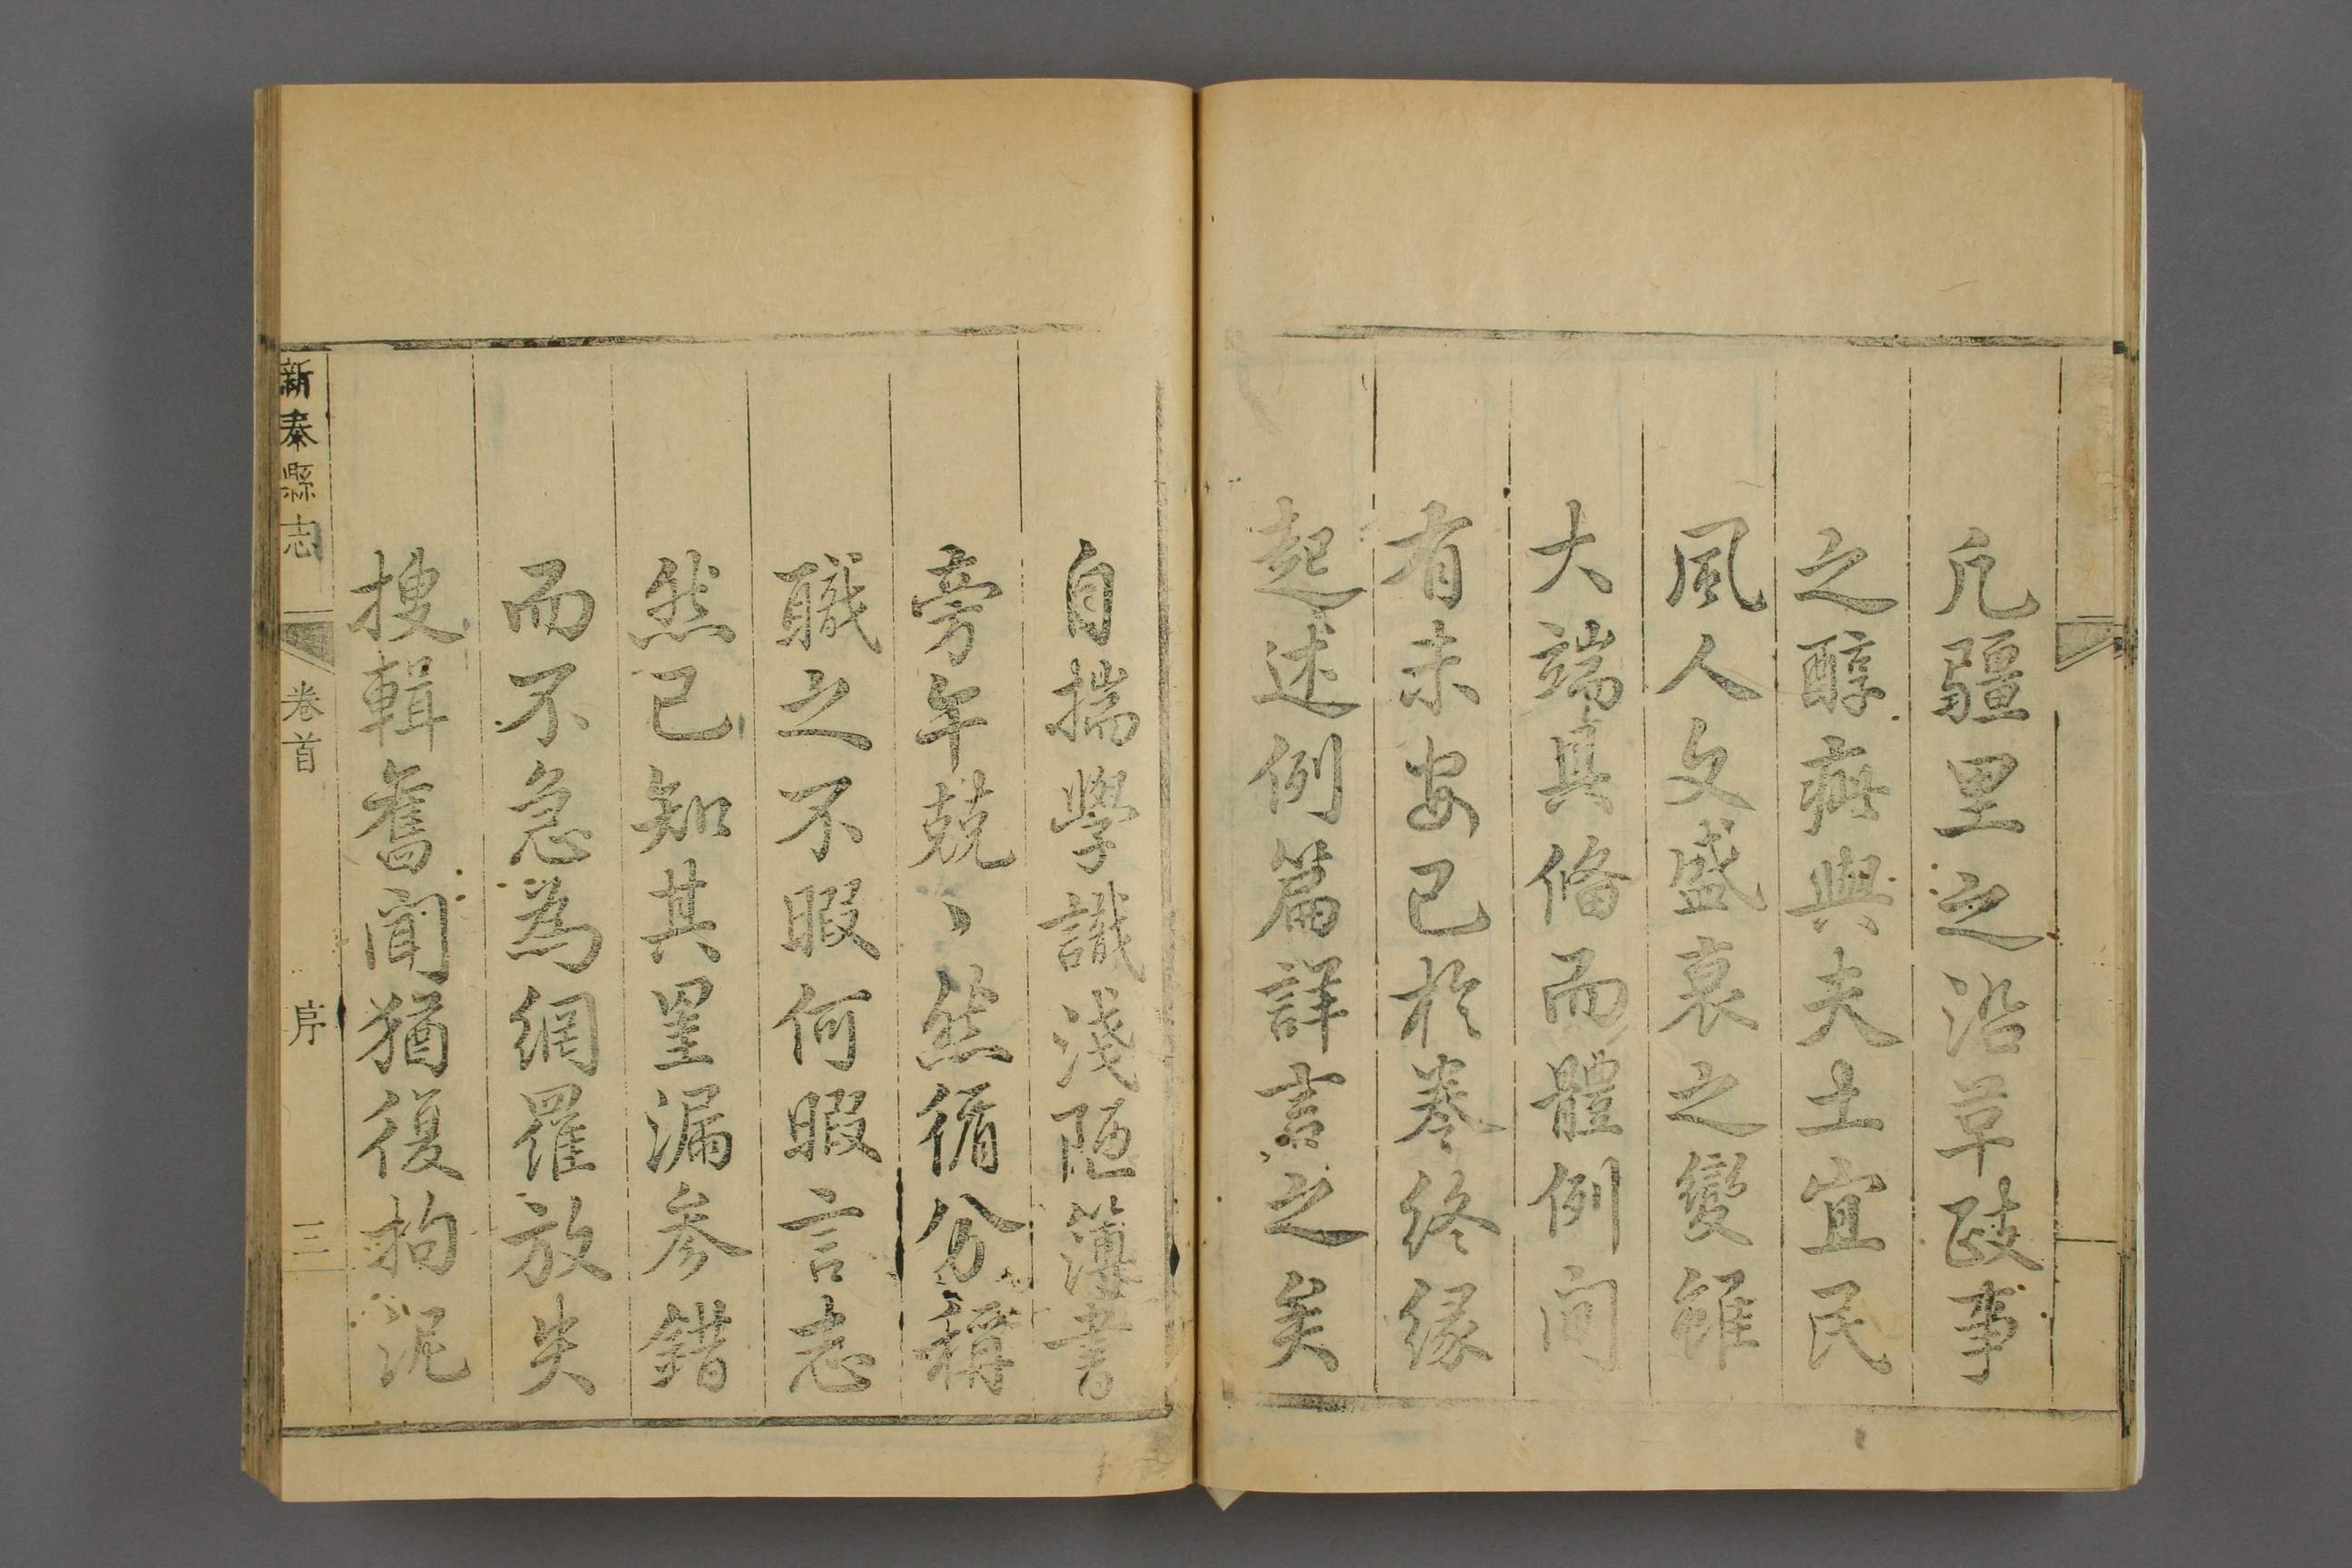 凡疆里之沿草政事
之醇疵與夫土宜民
風人文盛衰之變雖
大端具脩而體例间
有未安已於卷終緣
起述例篇詳言之矣
自揣學識淺陋簿書
旁午兢丶然循分稱
職之不暇何暇言志
然已知其罣漏参錯
而不急為網羅放失
搜輯舊聞猶復拘泥
新泰縣志 卷首 序 三